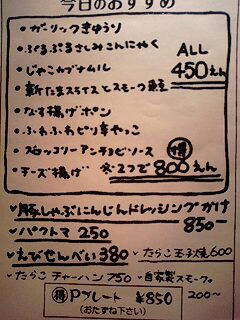 今日のおすすめ
・ガーリックきゅうり
・ぷるぷるさしみこんにゃく
・じゃこカブナムル
ALL 450えん
・新たまスライスとスモーク鮭
・なす揚げポン
・ふわふわピリ辛やっこ
・ブロッコリーアンチョビソース
・チーズ揚げ
㊝ ※2つで800えん
♥豚しゃぶにんじんドレッシングかけ 850-
♥パクトマ 250
♥えびせんべい380
・たらこ玉子焼 600
・たらこチャーハン750
・自家製スモーク。200〜
㊝ Pプレート ¥850
(おたずね下さい)